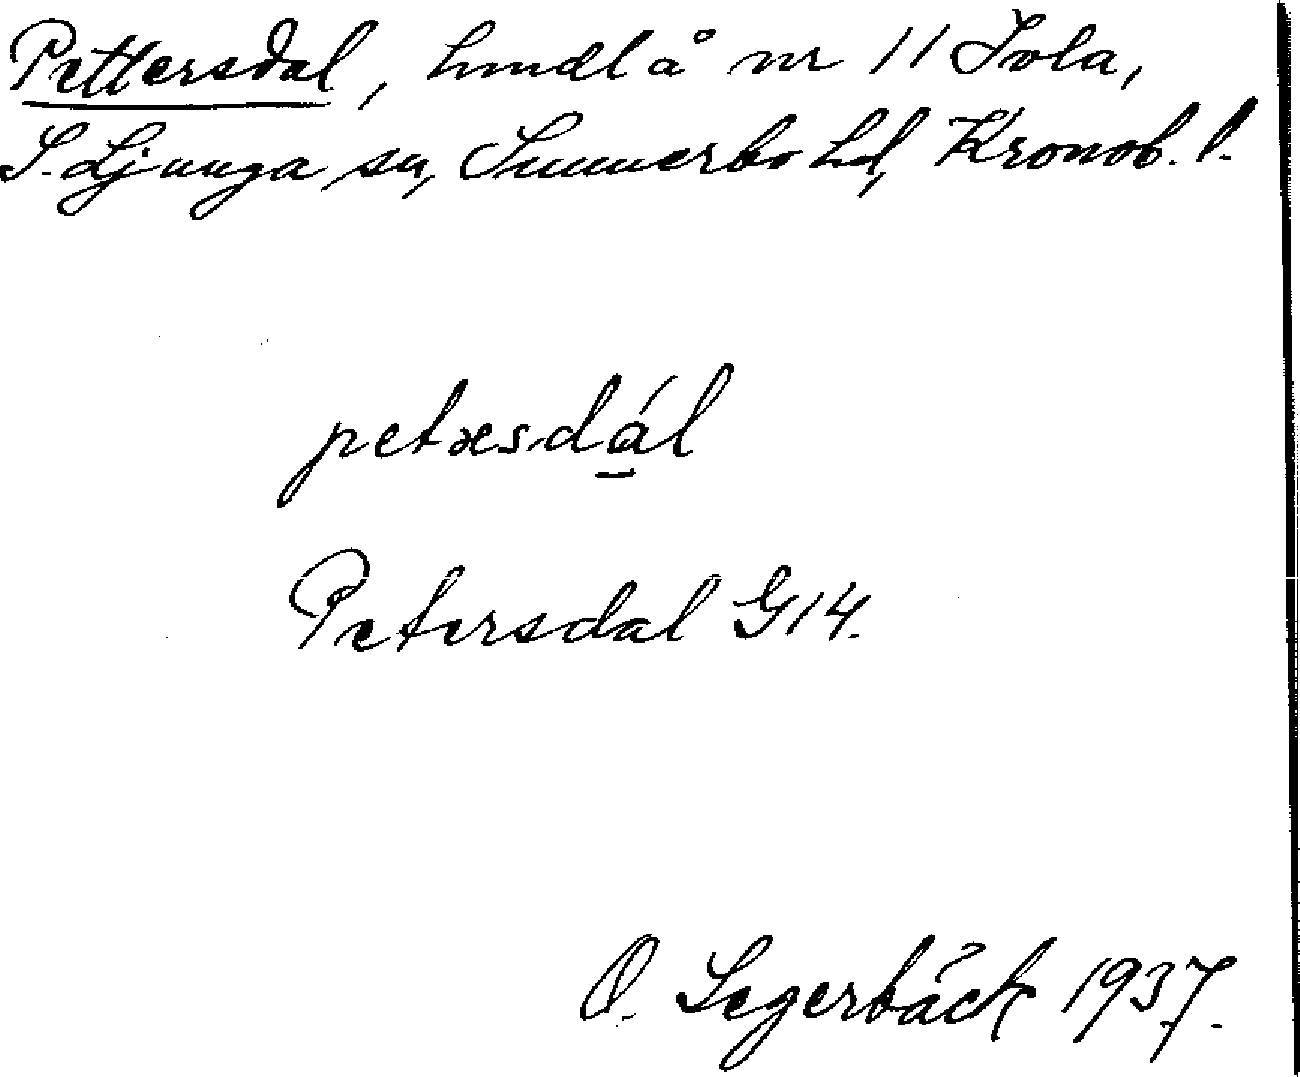 Pettersdal, hmdl å nr 11 Tola,
S. Ljunga sn, Sunnerbo hd, Kronob. l.
petæsdál
Petersdal G14.
O. Segerbäck 1937.